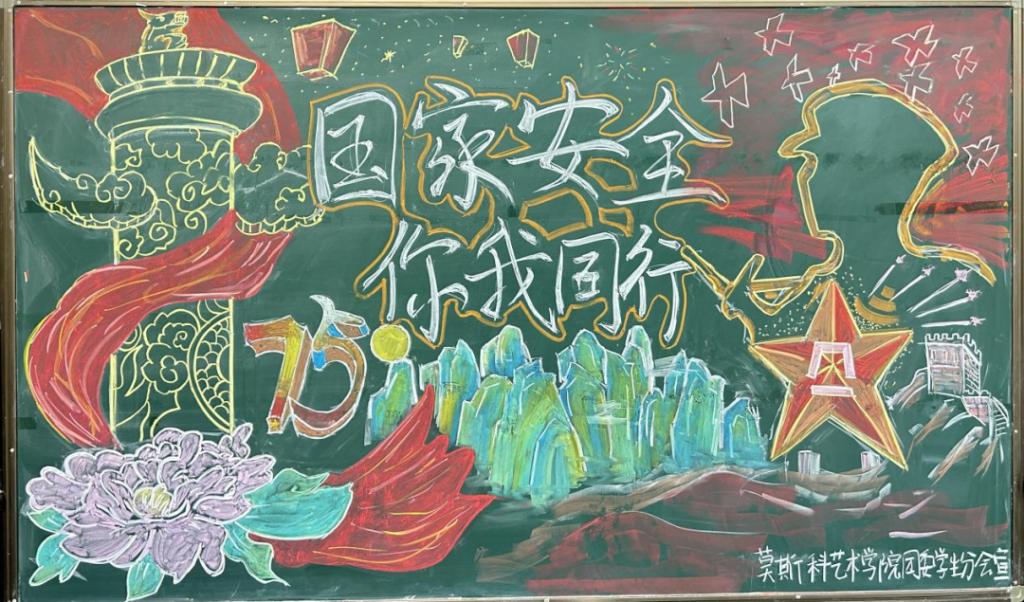 国家安全
你我同行
75
八一
莫斯科艺术学院团委学生分会宣